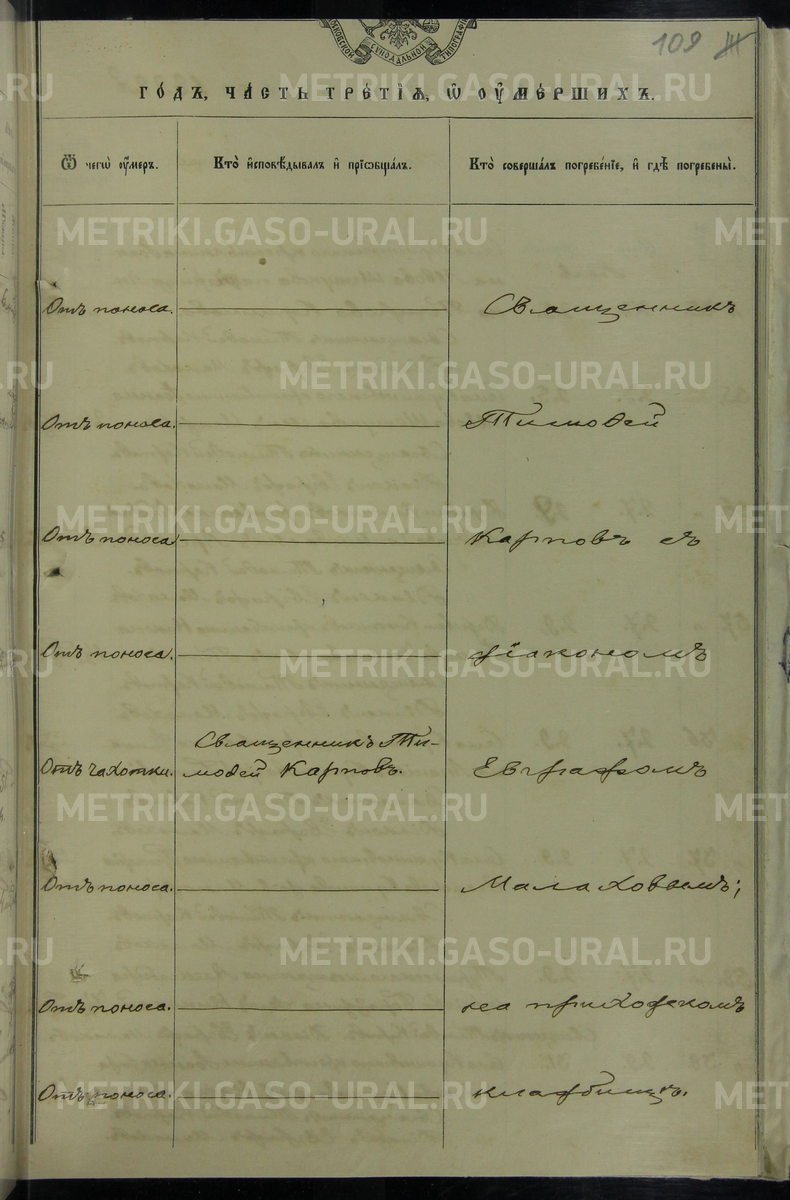 МОСКОВСКОЙ СѴНОДАЛЬНОЙ ТИПОГРАФІИ
109
ГО́ДЪ, ЧА́СТЬ ТРЕ́ТІѦ, Ѡ҆ ОУ҆МЕ́РШИХЪ.
Ѿ чегѡ̀ оу҆́меръ.
Кто̀ и҆сповѣ́дывалъ и҆ прїѡбща́лъ.
Кто̀ соверша́лъ погребе́нїе, и҆ гдѣ̀ погребены̀.
Отъ поноса.
Священникъ
Отъ поноса.
Тимоѳей
Отъ поноса
Карповъ съ
Отъ поноса.
діакономъ
Священникъ Ти-
Отъ чахотки.
моѳей Карповъ.
Евграфомъ
Отъ поноса.
Малаховымъ;
Отъ поноса.
на приходскомъ
Отъ поноса.
кладбищѣ.
METRIKI.GASO-URAL.RU